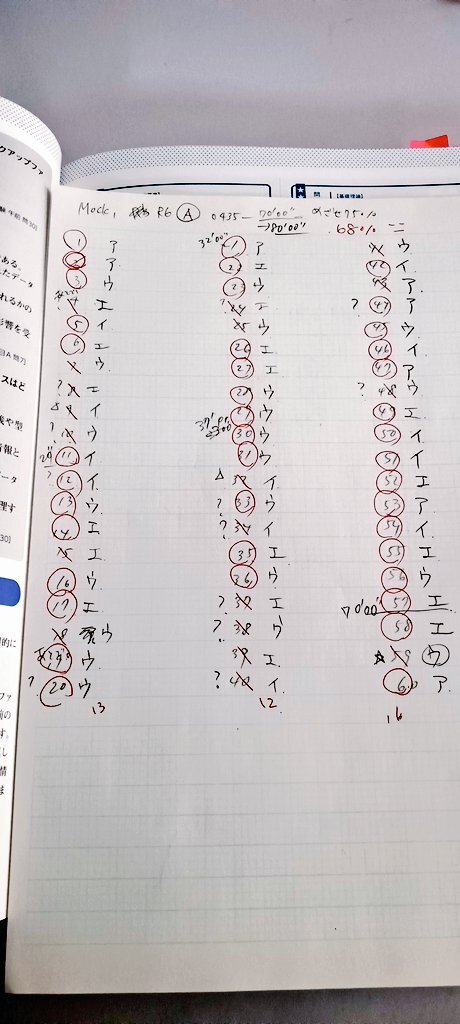 クアップファ
Mock, R6 A 0435 - 70'00" めざせ75%
→80'00" 68.0%
1 ア
2 ア
3 ウ
4 エ
5 イ
6 エ
7 ウ
? 8 エ
△ 9 イ
? 10 ウ
20" 11 イ
? 12 イ
13 ウ
14 エ
15 エ
16 ウ
17 エ
18 ウ
19 ウ
? 20 ウ
13
32'00" 21 ア
22 エ
23 ウ
? 24 エ
25 ウ
26 エ
27 エ
28 ウ
29 ウ
30 ウ
31 ウ
△ 32 イ
? 33 ウ
? 34 イ
35 エ
36 ウ
? 37 エ
? 38 ウ
39 エ
? 40 イ
12
41 ウ
42 イ
43 ア
? 44 ア
45 ウ
46 イ
47 ア
? 48 ウ
49 エ
50 イ
51 イ
52 エ
53 ア
54 イ
55 エ
56 ウ
70'00" 57 エ
58 エ
☆ 59 ウ
60 ア
16